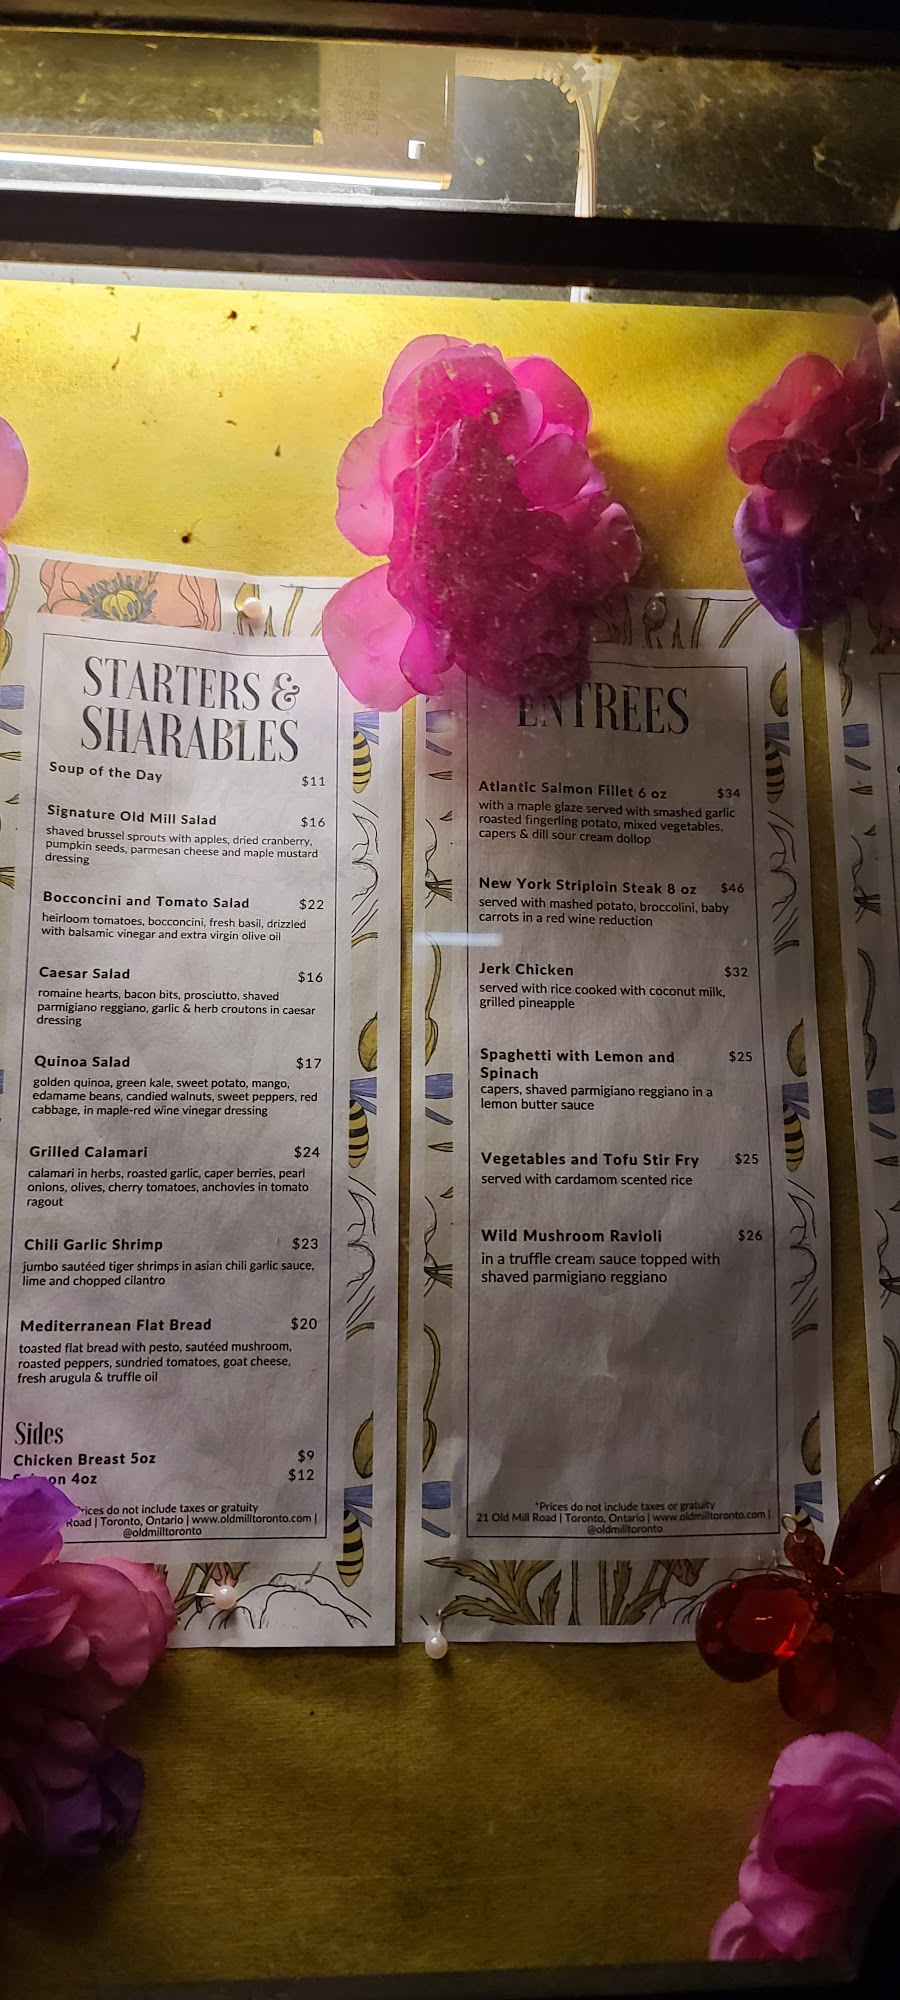 STARTERS &
SHARABLES
Soup of the Day $11
Signature Old Mill Salad $16
shaved brussel sprouts with apples, dried cranberry,
pumpkin seeds, parmesan cheese and maple mustard
dressing
Bocconcini and Tomato Salad $22
heirloom tomatoes, bocconcini, fresh basil, drizzled
with balsamic vinegar and extra virgin olive oil
Caesar Salad $16
romaine hearts, bacon bits, prosciutto, shaved
parmigiano reggiano, garlic & herb croutons in caesar
dressing
Quinoa Salad $17
golden quinoa, green kale, sweet potato, mango,
edamame beans, candied walnuts, sweet peppers, red
cabbage, in maple-red wine vinegar dressing
Grilled Calamari $24
calamari in herbs, roasted garlic, caper berries, pearl
onions, olives, cherry tomatoes, anchovies in tomato
ragout
Chili Garlic Shrimp $23
jumbo sautéed tiger shrimps in asian chili garlic sauce,
lime and chopped cilantro
Mediterranean Flat Bread $20
toasted flat bread with pesto, sautéed mushroom,
roasted peppers, sundried tomatoes, goat cheese,
fresh arugula & truffle oil
Sides
Chicken Breast 5oz $9
4oz $12
Prices do not include taxes or gratuity
Road | Toronto, Ontario | www.oldmilltoronto.com |
@oldmilltoronto
ENTREES
Atlantic Salmon Fillet 6 oz $34
with a maple glaze served with smashed garlic
roasted fingerling potato, mixed vegetables,
capers & dill sour cream dollop
New York Striploin Steak 8 oz $46
served with mashed potato, broccolini, baby
carrots in a red wine reduction
Jerk Chicken $32
served with rice cooked with coconut milk,
grilled pineapple
Spaghetti with Lemon and $25
Spinach
capers, shaved parmigiano reggiano in a
lemon butter sauce
Vegetables and Tofu Stir Fry $25
served with cardamom scented rice
Wild Mushroom Ravioli $26
in a truffle cream sauce topped with
shaved parmigiano reggiano
*Prices do not include taxes or gratuity
21 Old Mill Road | Toronto, Ontario | www.oldmilltoronto.com |
@oldmilltoronto